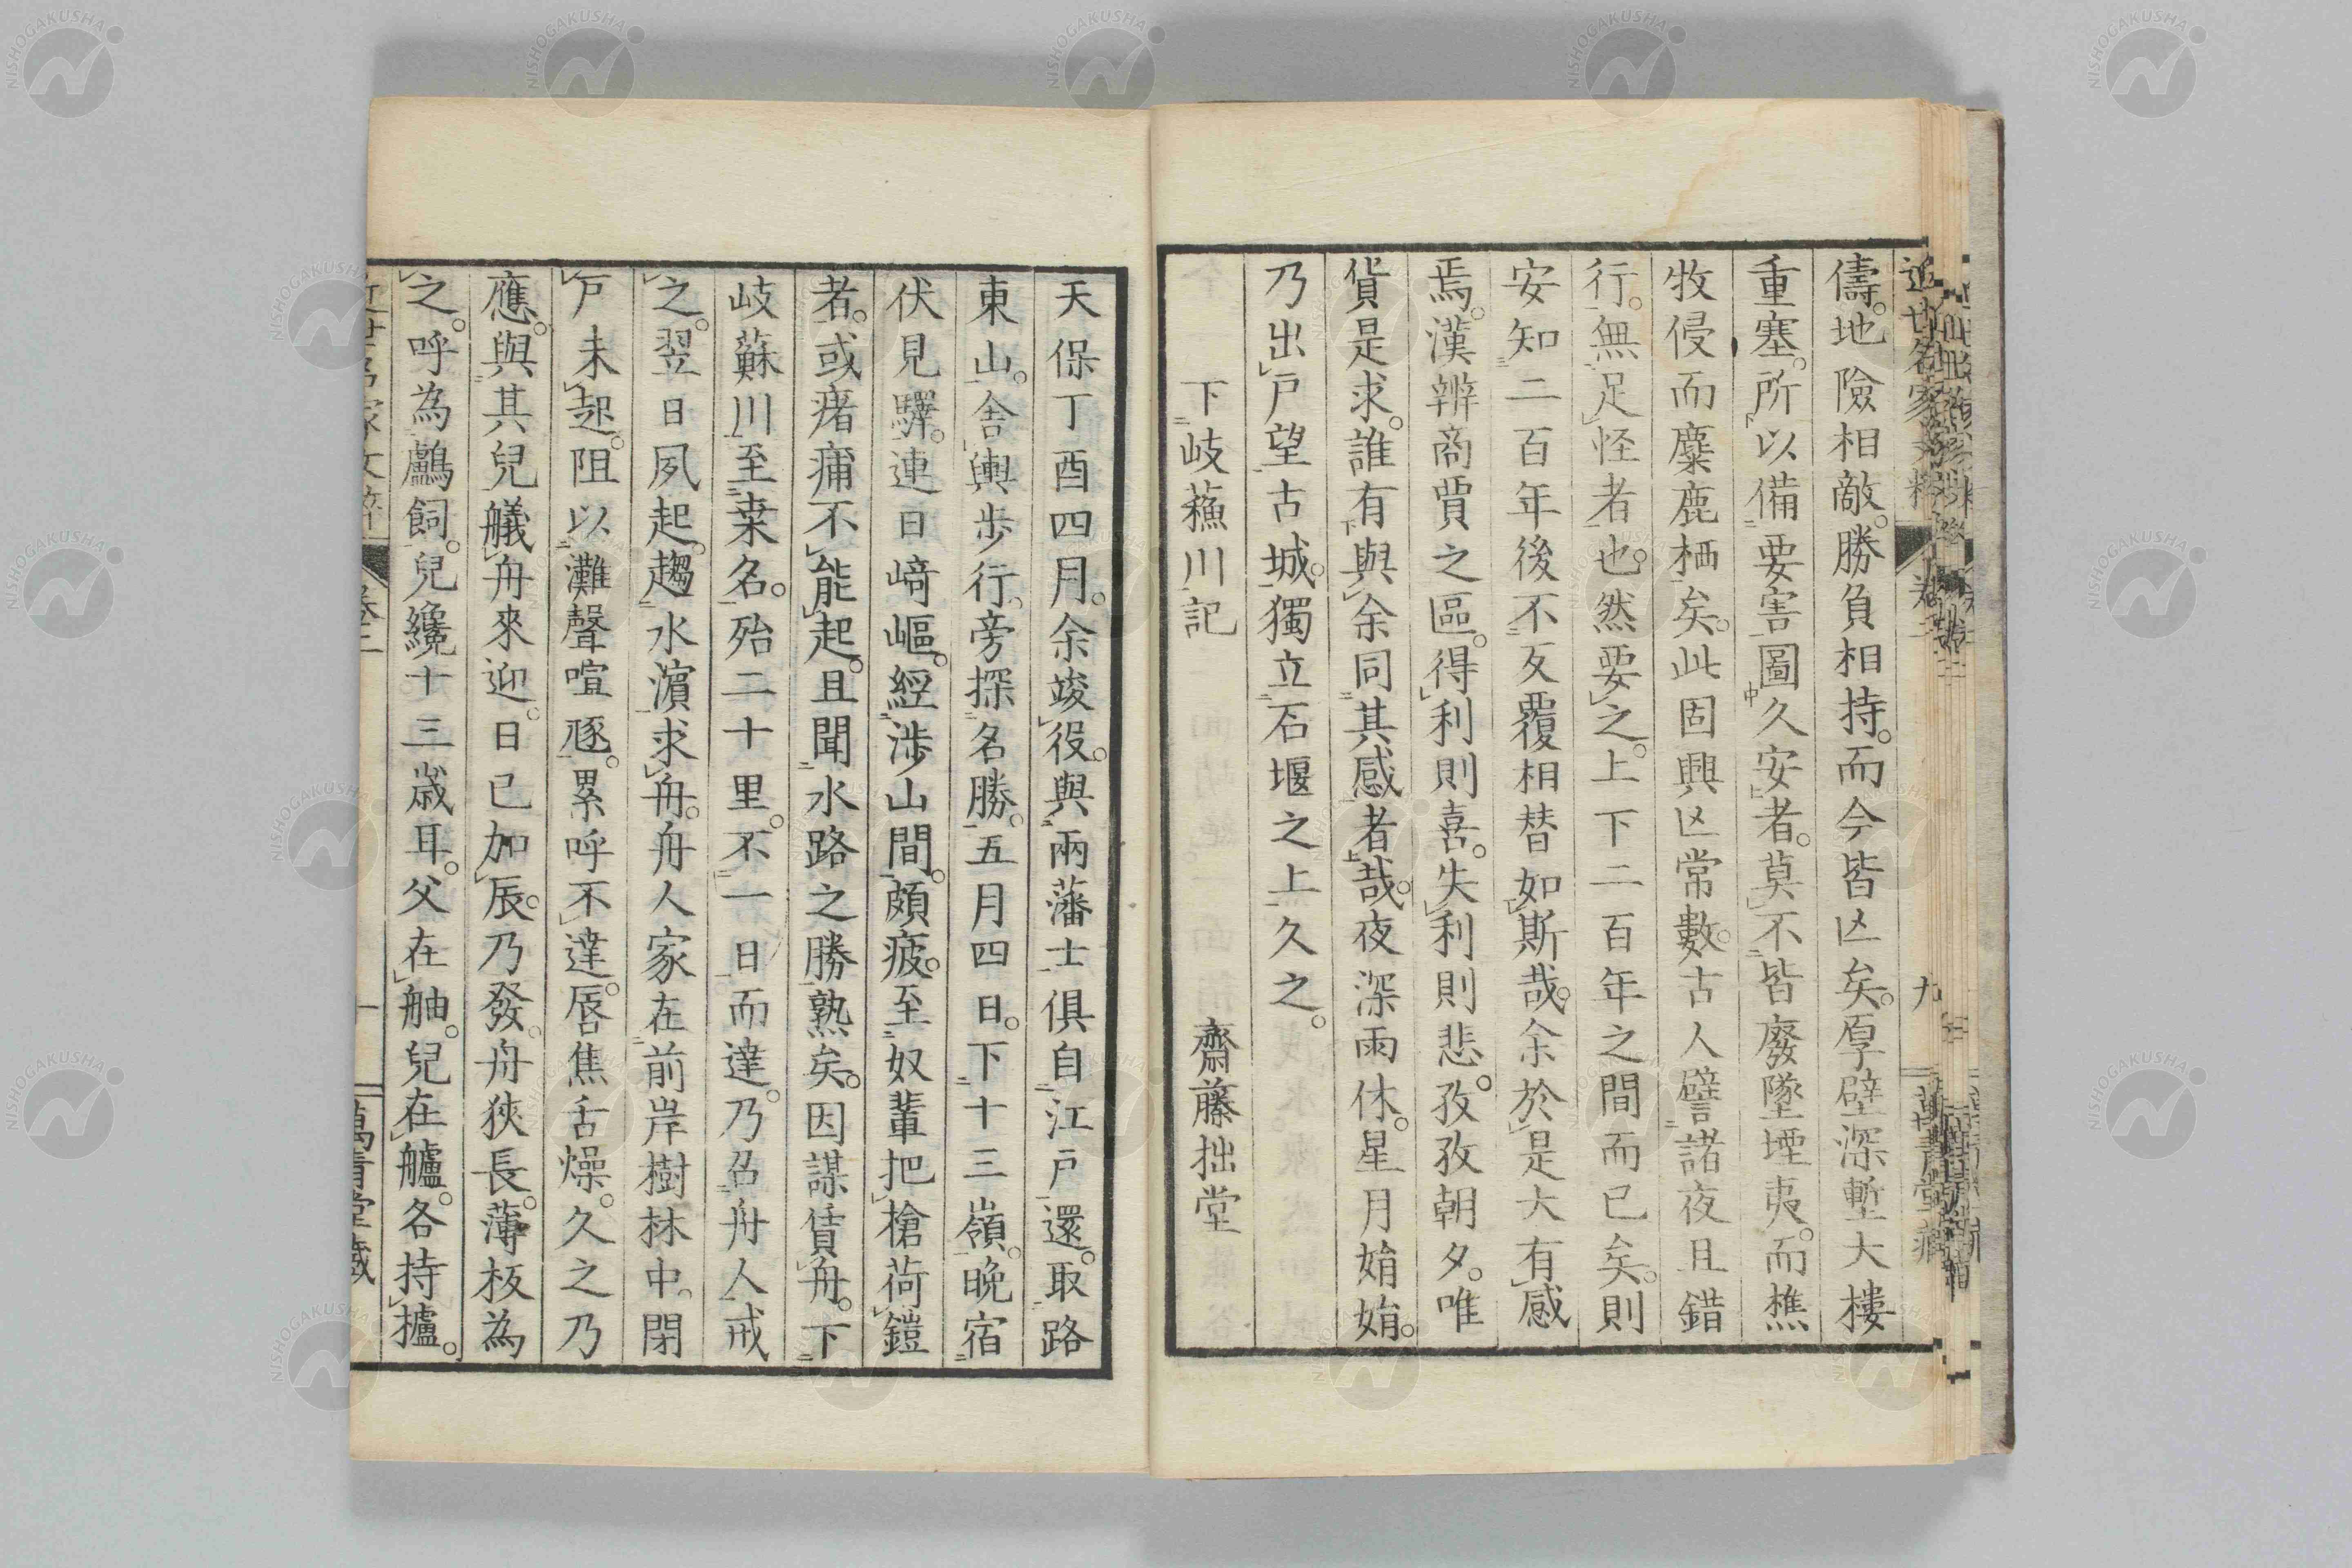 儔。地險相敵。勝負相持。而今皆亾矣。厚壁深塹大樓
重塞。所以備要害圖久安者。莫不皆廢墜堙夷。而樵
牧侵而麋鹿栖矣。此固興亾常數。古人譬諸夜旦錯
行。無足怪者也。然要之。上下二百年之間而已矣。則
安知二百年後不反覆相替如斯哉。余於是大有感
焉。漢辨商賈之區。得利則喜。失利則悲。孜孜朝夕。唯
貨是求。誰有與余同其感者哉。夜深雨休。星月姷姷。
乃出戶望古城。獨立石堰之上久之。
下岐蘓川記
齋藤拙堂
天保丁酉四月。余竣役。與兩藩士俱自江戶還。取路
東山。舍輿步行。旁探名勝。五月四日。下十三嶺。晚宿
伏見驛。連日崎嶇。經涉山間。頗疲。至奴輩把槍荷鎧
者。或瘏痡不能起。且聞水路之勝熟矣。因謀賃舟。下
岐蘇川至桒名。殆二十里。不一日而達。乃召舟人戒
之。翌日夙起。趨水濵求舟。舟人家在前岸樹林中。閉
戶未起。阻以灘聲喧豗。累呼不達。唇焦舌燥。久之乃
應。與其兒艤舟來迎。日已加辰。乃發。舟狹長。薄板為
之。呼為鸕飼。兒纔十三歲耳。父在舳。兒在艫。各持攎。
近世名家文粹
卷二
九
萬青堂藏